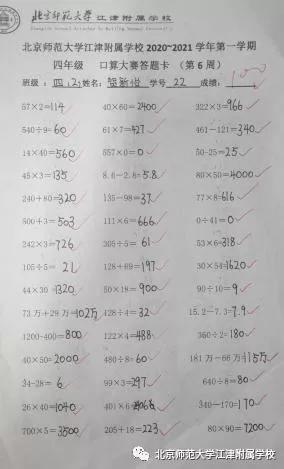 北京师范大学江津附属学校
北京师范大学江津附属学校 2020~2021 学年第一学期
四年级 口算大赛答题卡 （第 6 周）
班级： 四(2) 姓名： 学号 22 成绩： 100
57×2=114 40×60=2400 322×3=966
540÷9=60 61×7=427 461-121=340
14×40=560 557×0=0 50-25=25
45×3=135 8.6-2.8=5.8 80×50=4000
240+80=320 135-98=37 77×8=616
500+3=503 111×6=666 0÷41=0
242×3=726 305÷5=61 53×6=318
105÷5=21 128+69=197 30×54=1620
44×30=1320 50×18=900 90÷10=9
73万+29万=102万 128÷4=32 15.2-7.3=7.9
1200-400=800 122×4=488 360÷2=180
40×50=2000 480÷8=60 181万-66万=115万
34-28=6 99×3=297 640÷8=80
26×40=1040 340-170=170
700×5=3500 205+18=223 80×90=7200
北京师范大学江津附属学校